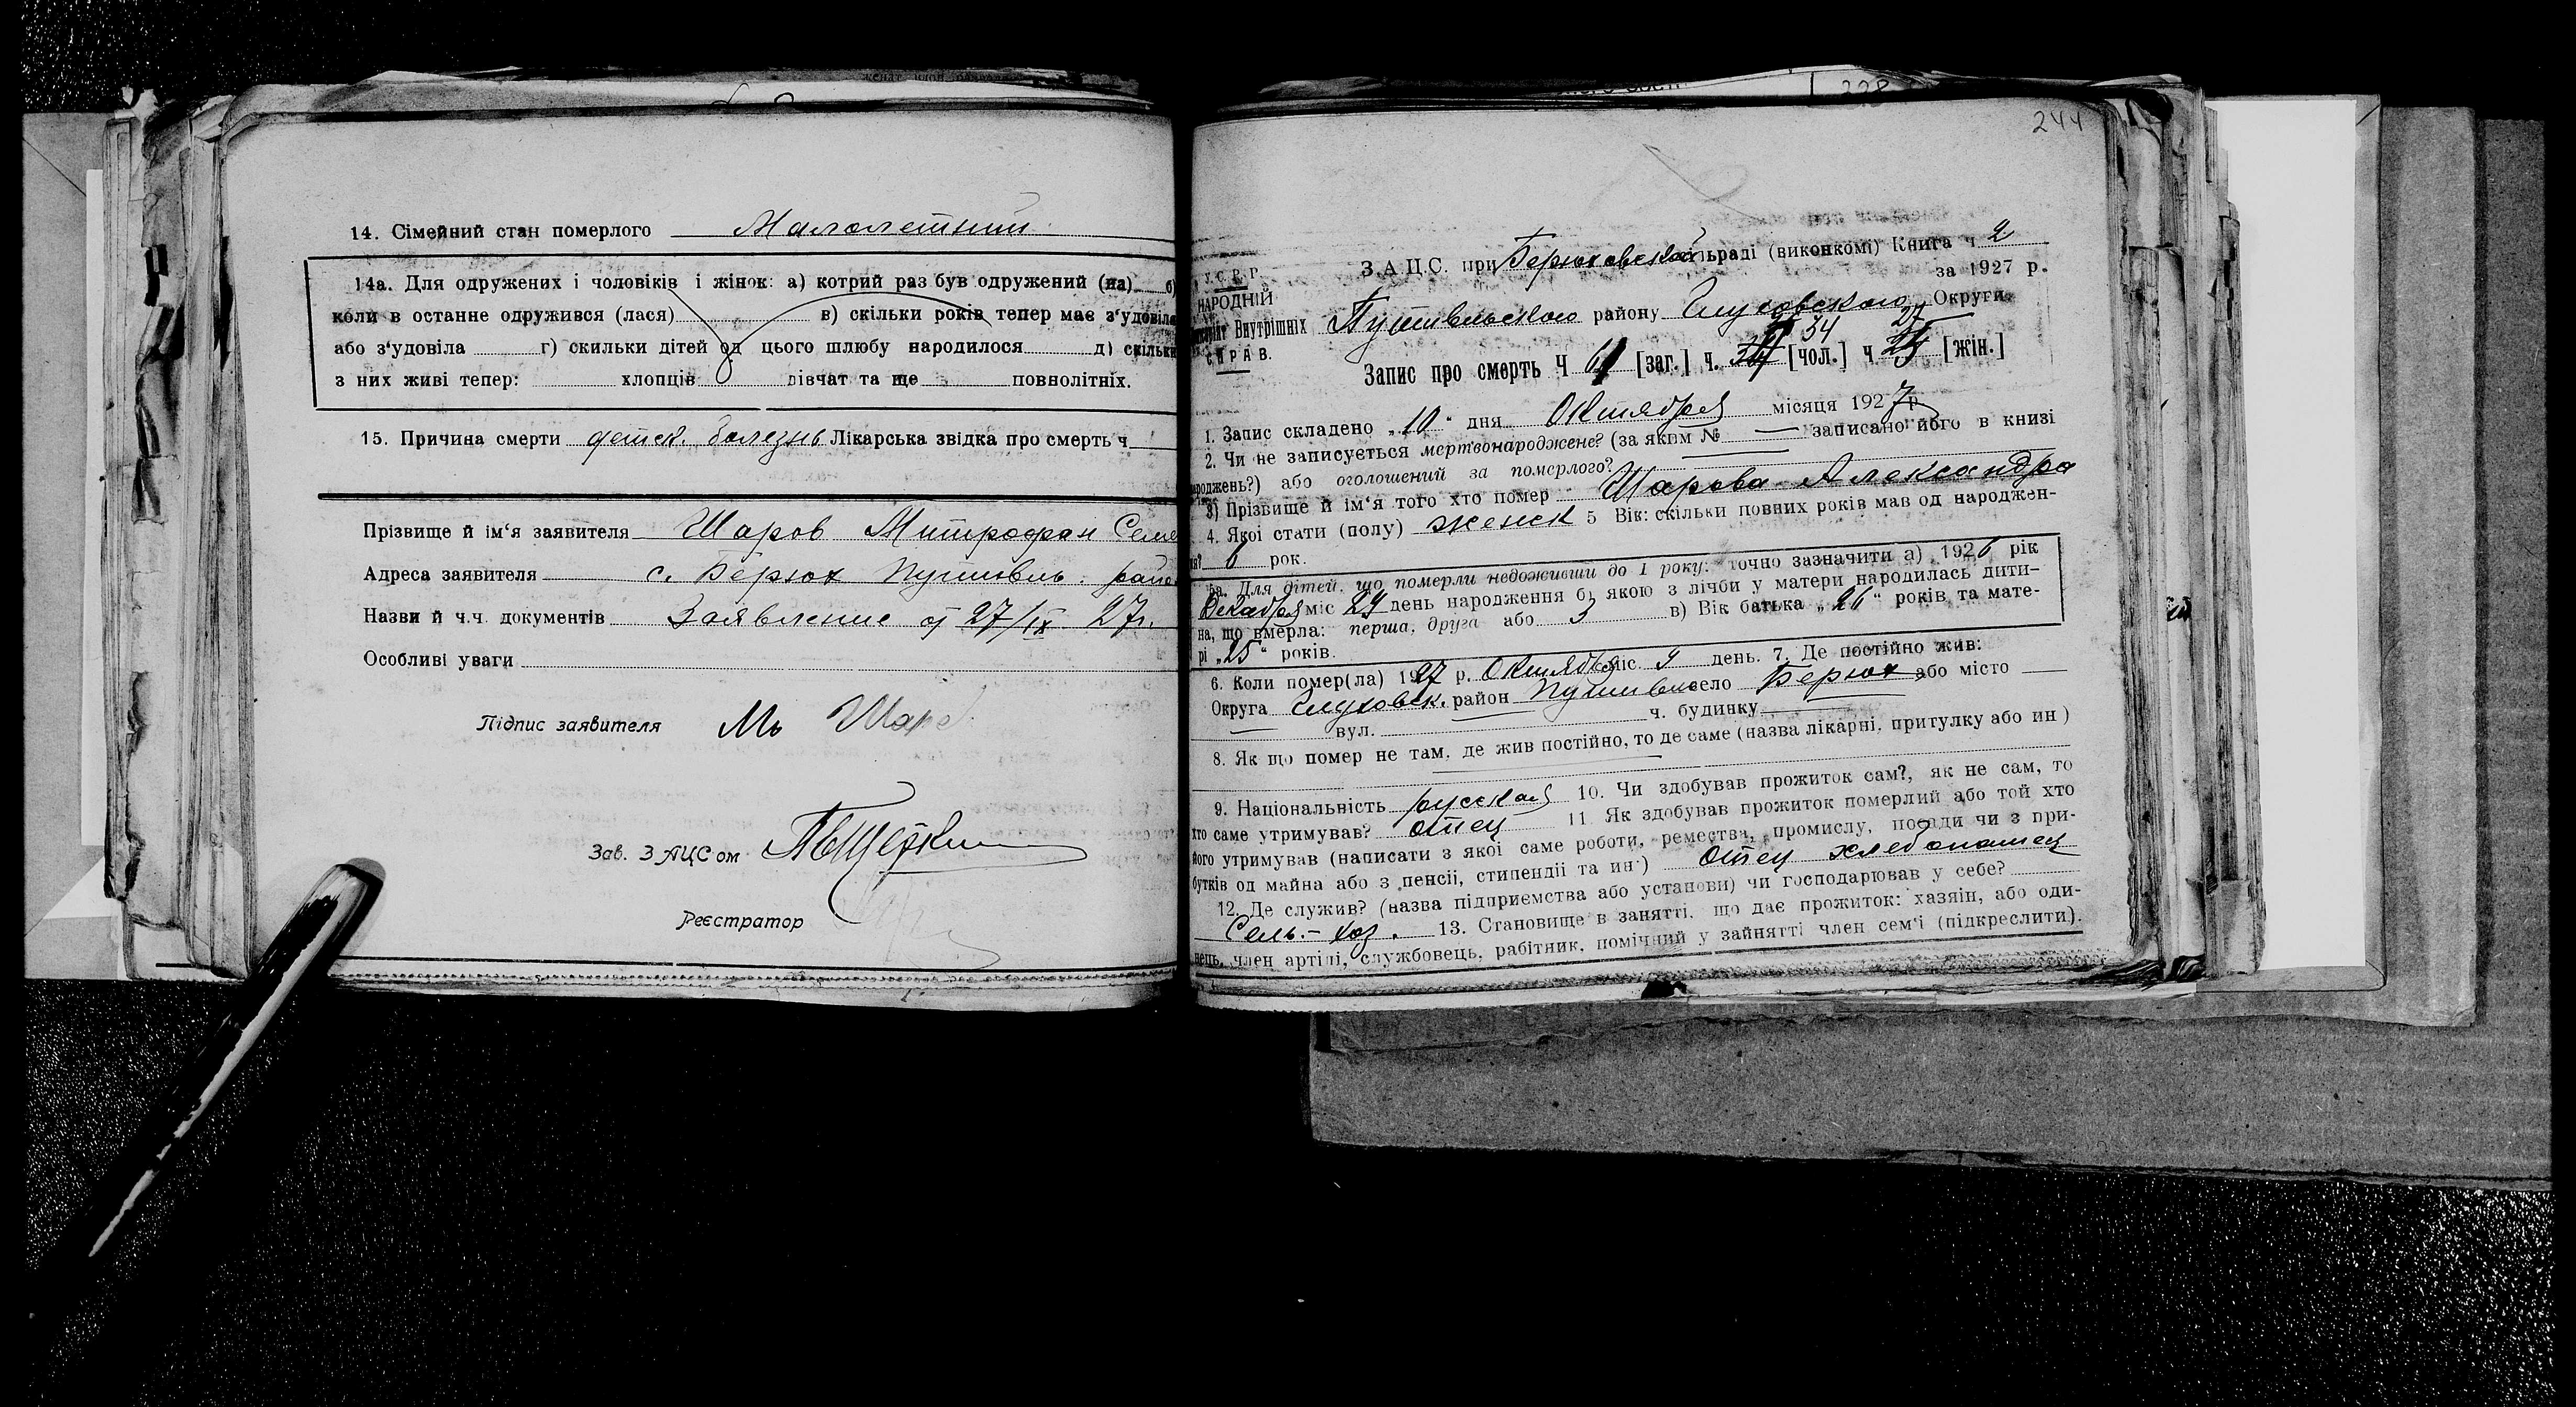 14. Сімейний стан померлого Малолетний
14а. Для одружених і чоловіків і жінок: а) котрий раз був одружений (на) б)
коли в останне одружився (лася) в) скільки років тепер має з'удовіла
або з'удовіла г) скильки дітей од цього шлюбу народилося д) скільки
з них живі тепер: хлопців дівчат та ще повнолітніх.
15. Причина смерти детск. болезнь Лікарська звідка про смерть ч.
Прізвище й ім'я заявителя Шаров Митрофан Семе
Адреса заявителя с. Берюх Путивль. райо
Назви й ч.ч. документів Заявление от 27/IX 27г.
Особливі уваги
Підпис заявителя Мь Шаро
Зав. ЗАЦСом
Реєстратор
244
У.С.Р.Р.
НАРОДНІЙ
Внутрішніх
СПРАВ.
З.А.Ц.С. при Берюховской раді (виконкомі) Книга ч 2
за 1927 р.
Путивльского району Глуховского Округи
34 27
Запис про смерть Ч 61 [заг.] ч. [чол.] ч [жін.]
1. Запис складено „10“ дня Октября місяця 1927 р
2. Чи не записується мертвонароджене? (за яким № — записано його в книзі
роджень?) або оголошений за померлого?
3) Прізвище й ім'я того хто помер Шарова Александра
4. Якої стати (полу) женск 5 Вік: скільки повних років мав од народжен-
ня? 6 рок.
5а. Для дітей, що померли недоживши до 1 року: точно зазначити а) 1926 рік
Декабря міс 29 день народження б) якою з лічби у матери народилась дити-
на, що вмерла: перша, друга або 3 в) Вік батька „26“ років та мате-
рі „25“ років.
6. Коли помер(ла) 1927 р. Октября міс. 9 день. 7. Де постійно жив:
Округа Глуховск. район Путивль село Берюх або місто —
— вул. ч. будинку
8. Як що помер не там, де жив постійно, то де саме (назва лікарні, притулку або ин )
9. Національність русская 10. Чи здобував прожиток сам?, як не сам, то
хто саме утримував? отец 11 Як здобував прожиток померлий або той хто
його утримував (написати з якої саме роботи, ремества, промислу, посади чи з при-
бутків од майна або з пенсії, стипендії та ин.) отец хлебопашец
12. Де служив? (назва підприємства або установи) чи господарював у себе?
Сель.-хоз. 13. Становище в занятті, що дає прожиток: хазяін, або оди-
нець, член артілі, службовець, рабітник, помічний у зайнятті член сем'ї (підкреслити).